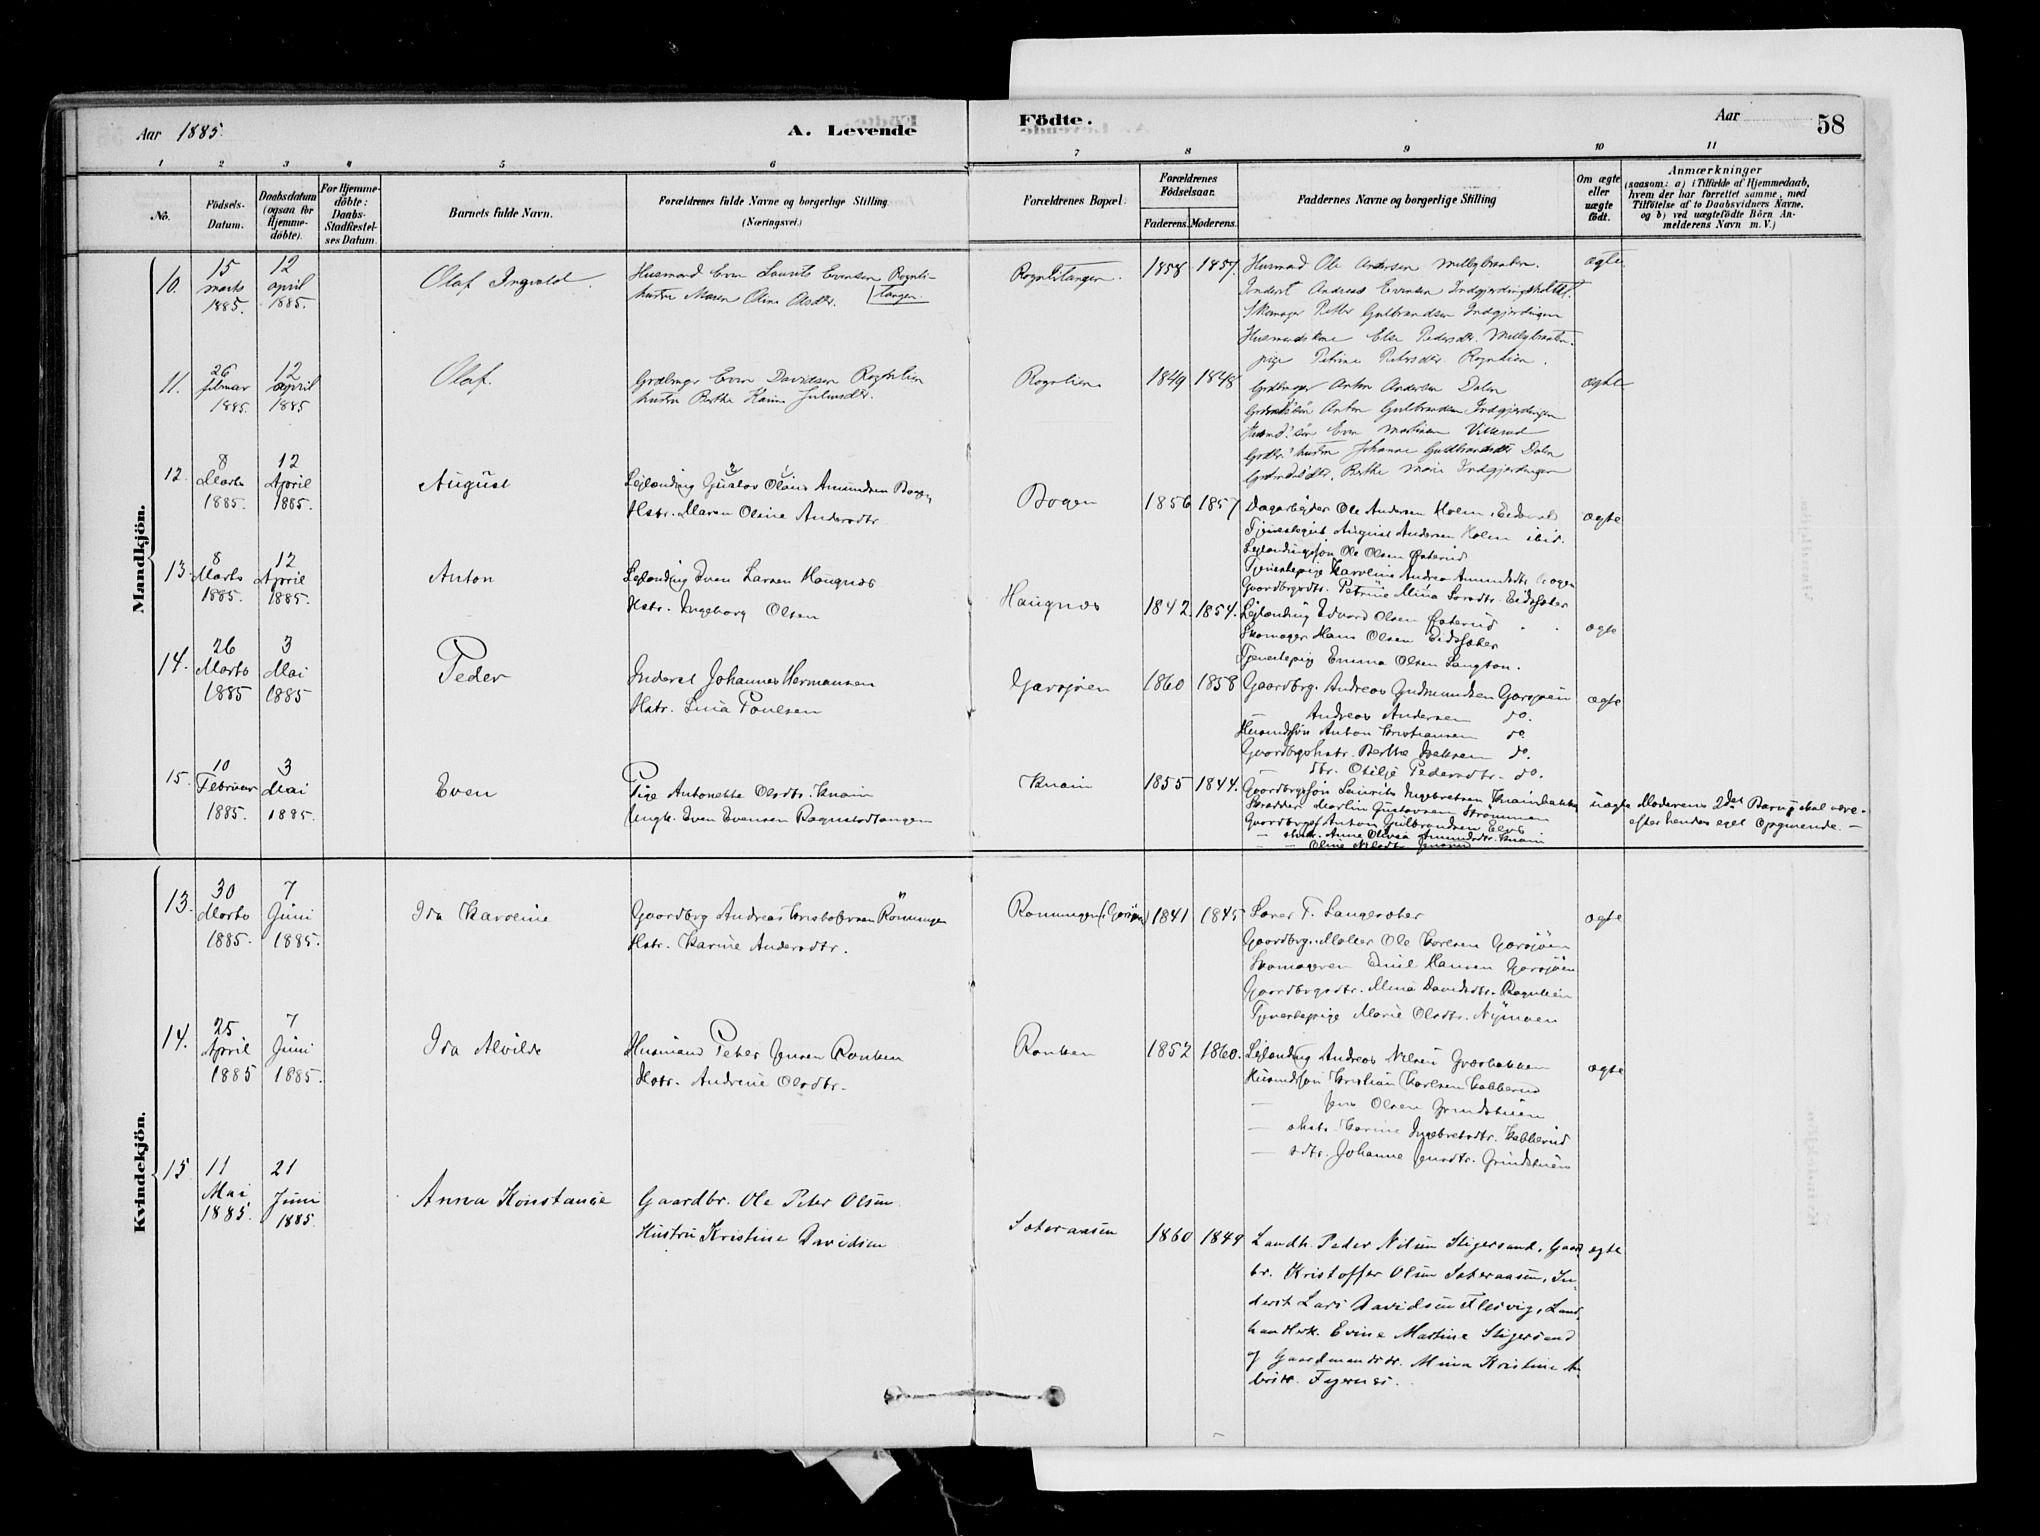 Aar 1885.
A. Levende
Födte.
Aar
58
1 2 3 4 5 6 7 8 9 10 11
No.
Födsels-
Datum.
Daabsdatum
(ogsaa for
Hjemme-
döbte).
For Hjemme-
döbte:
Daabs-
Stadfæstel-
ses Datum.
Barnets fulde Navn.
Forældrenes fulde Navne og borgerlige Stilling
(Næringsvei.)
Forældrenes Bopæl.
Forældrenes
Födselsaar.
Faderens. Moderens.
Faddernes Navne og borgerlige Stilling
Om ægte
eller
uægte
födt.
Anmærkninger
(saasom: a) i Tilfælde af Hjemmedaab,
hvem der har forrettet samme, med
Tilföielse af to Daabsvidners Navne,
og b) ved uægtefödte Börn An-
melderens Navn m. V.)
Mandkjön.
10.
15
marts
1885.
12
april
1885.
Olaf Ingvald.
Husmand Even Laurits Evensen Rognli-
hustru Maren Oline Olsdtr. tangen.
Rognlitangen.
1858 1857.
Husmand Ole Andersen Melbybraaten.
Inderst Andreas Evensen Indgjerdingsholtet.
Skomager Petter Gulbrandsen Indgjerdingen
Husmandskone Else Pedersdtr. Melbybraaten.
pige Petrine Petersdtr. Rognlien.
ægte
11.
26
februar
1885.
12
april
1885
Olaf.
Grdbruger Even Davidsen Rognlien
hustru Berthe Karine Juliusdtr.
Rognlien
1849 1848
Grdbruger Anton Andersen Dalen
Grdmds søn Anton Gulbrandsen Indgjerdingen
Husmd. søn Even Martinsen
Grdbr. hustru Johanne Guldbrandsdtr Dalen
Grdmdsdtr. Berthe Marie Indgjerdingen
ægte
12.
8
Marts
1885.
12
April
1885.
August
Leilænding Gustav Olaus Amundsen Bogen
Hstr. Maren Oline Andersdtr
Bogen
1856 1857
Dagarbejder Ole Andersen Holm, Eidsvold
Tjenestegut August Andersen Holm ibid.
Leilændingssøn Ole Olsen Østerud
Tjenestepige Karoline Andrea Amundsdtr Bogen
Gaardbrgsdtr. Petrine Mina Larsdtr. Eidssæter
ægte
13.
8
Marts
1885.
12
April
1885.
Anton
Leilænding Even Larsen Haugnæs
Hstr. Ingeborg Olsen
Haugnæs
1842. 1854.
Leilænding Edvard Olsen Østerud
Skomager Hans Olsen Eidssæter
Tjenestepige Emma Olsen Langton.
ægte
14.
26
Marts
1885
3
Mai
1885
Peder
Inderst Johannes Hermansen
Hstr. Lina Poulsen
Garsjøen
1860 1858
Gaardbrg. Andreas Gudmundsen Garsjøen
— Andreas Andersen do.
Husmdssøn Anton Kristiansen do
Gaardbrgshstr. Berthe Isaksen do.
— dtr. Otilje Pedersdtr. do.
ægte
15.
10
Februar
1885.
3
Mai
1885.
Even
Pige Antonette Olsdtr. Knain
Ungk. Even Evensen Rognstadtangen
Knain
1855 1844.
Gaardbrgssøn Laurits Ingebretsen Knainbakken
Skrædder Martin Gustavsen Strømmen
Gaardbrger Anton Gulbrandsen Elvs
— Anne Olivia Amundsdtr. Knain
— Oline Nilsdtr Knain
uægte
Moderens 2det Barn, skal være
efter hendes eget Opgivende. —
Kvindekjön.
13.
30
Marts
1885.
7
Juni
1885.
Ida Karoline
Gaardbrg Andreas Kristofersen Rönningen
Hstr. Karine Andersdtr.
Ronningen (Garsjøen)
1841 1845
Lærer T. Langesæter
Gaardbrg. Maler Ole Karlsen Garsjøen
Skomageren Emil Hansen Garsjøen
Gaardbrgsdtr. Mina Davidsdtr. Rognlien
Tjenestepige Marie Olsdtr. Nymoen
ægte
14.
25
April
1885
7
Juni
1885.
Ida Alvilde
Husmand Peter Jensen Ronken
Hstr. Andrine Olsdtr.
Ronken
1852 1860.
Leilænding Andreas Nilsen Kværbakken
Husmdssøn Kristian Karlsen Kabberud
— Jens Olsen Grindstuen
— shstr. Karine Ingebretsdtr. Kabberud
— sdtr. Johanne Jensdtr. Grindstuen
ægte
15
11
Mai
1885.
21
Juni
1885.
Anna Konstanse
Gaardbr. Ole Peter Olsen
Hustru Kristine Davidsen
Sæteraasen
1860 1849
Landh. Peder Nilsen Stigersand, Gaard-
br. Kristoffer Olsen Sæteraasen, In-
derst Lars Davidsen Flesvig, Land-
handlersk. Evine Martine Stigersand
og Gaardmandsdr. Mina Kristine An-
Fagernes.
ægte